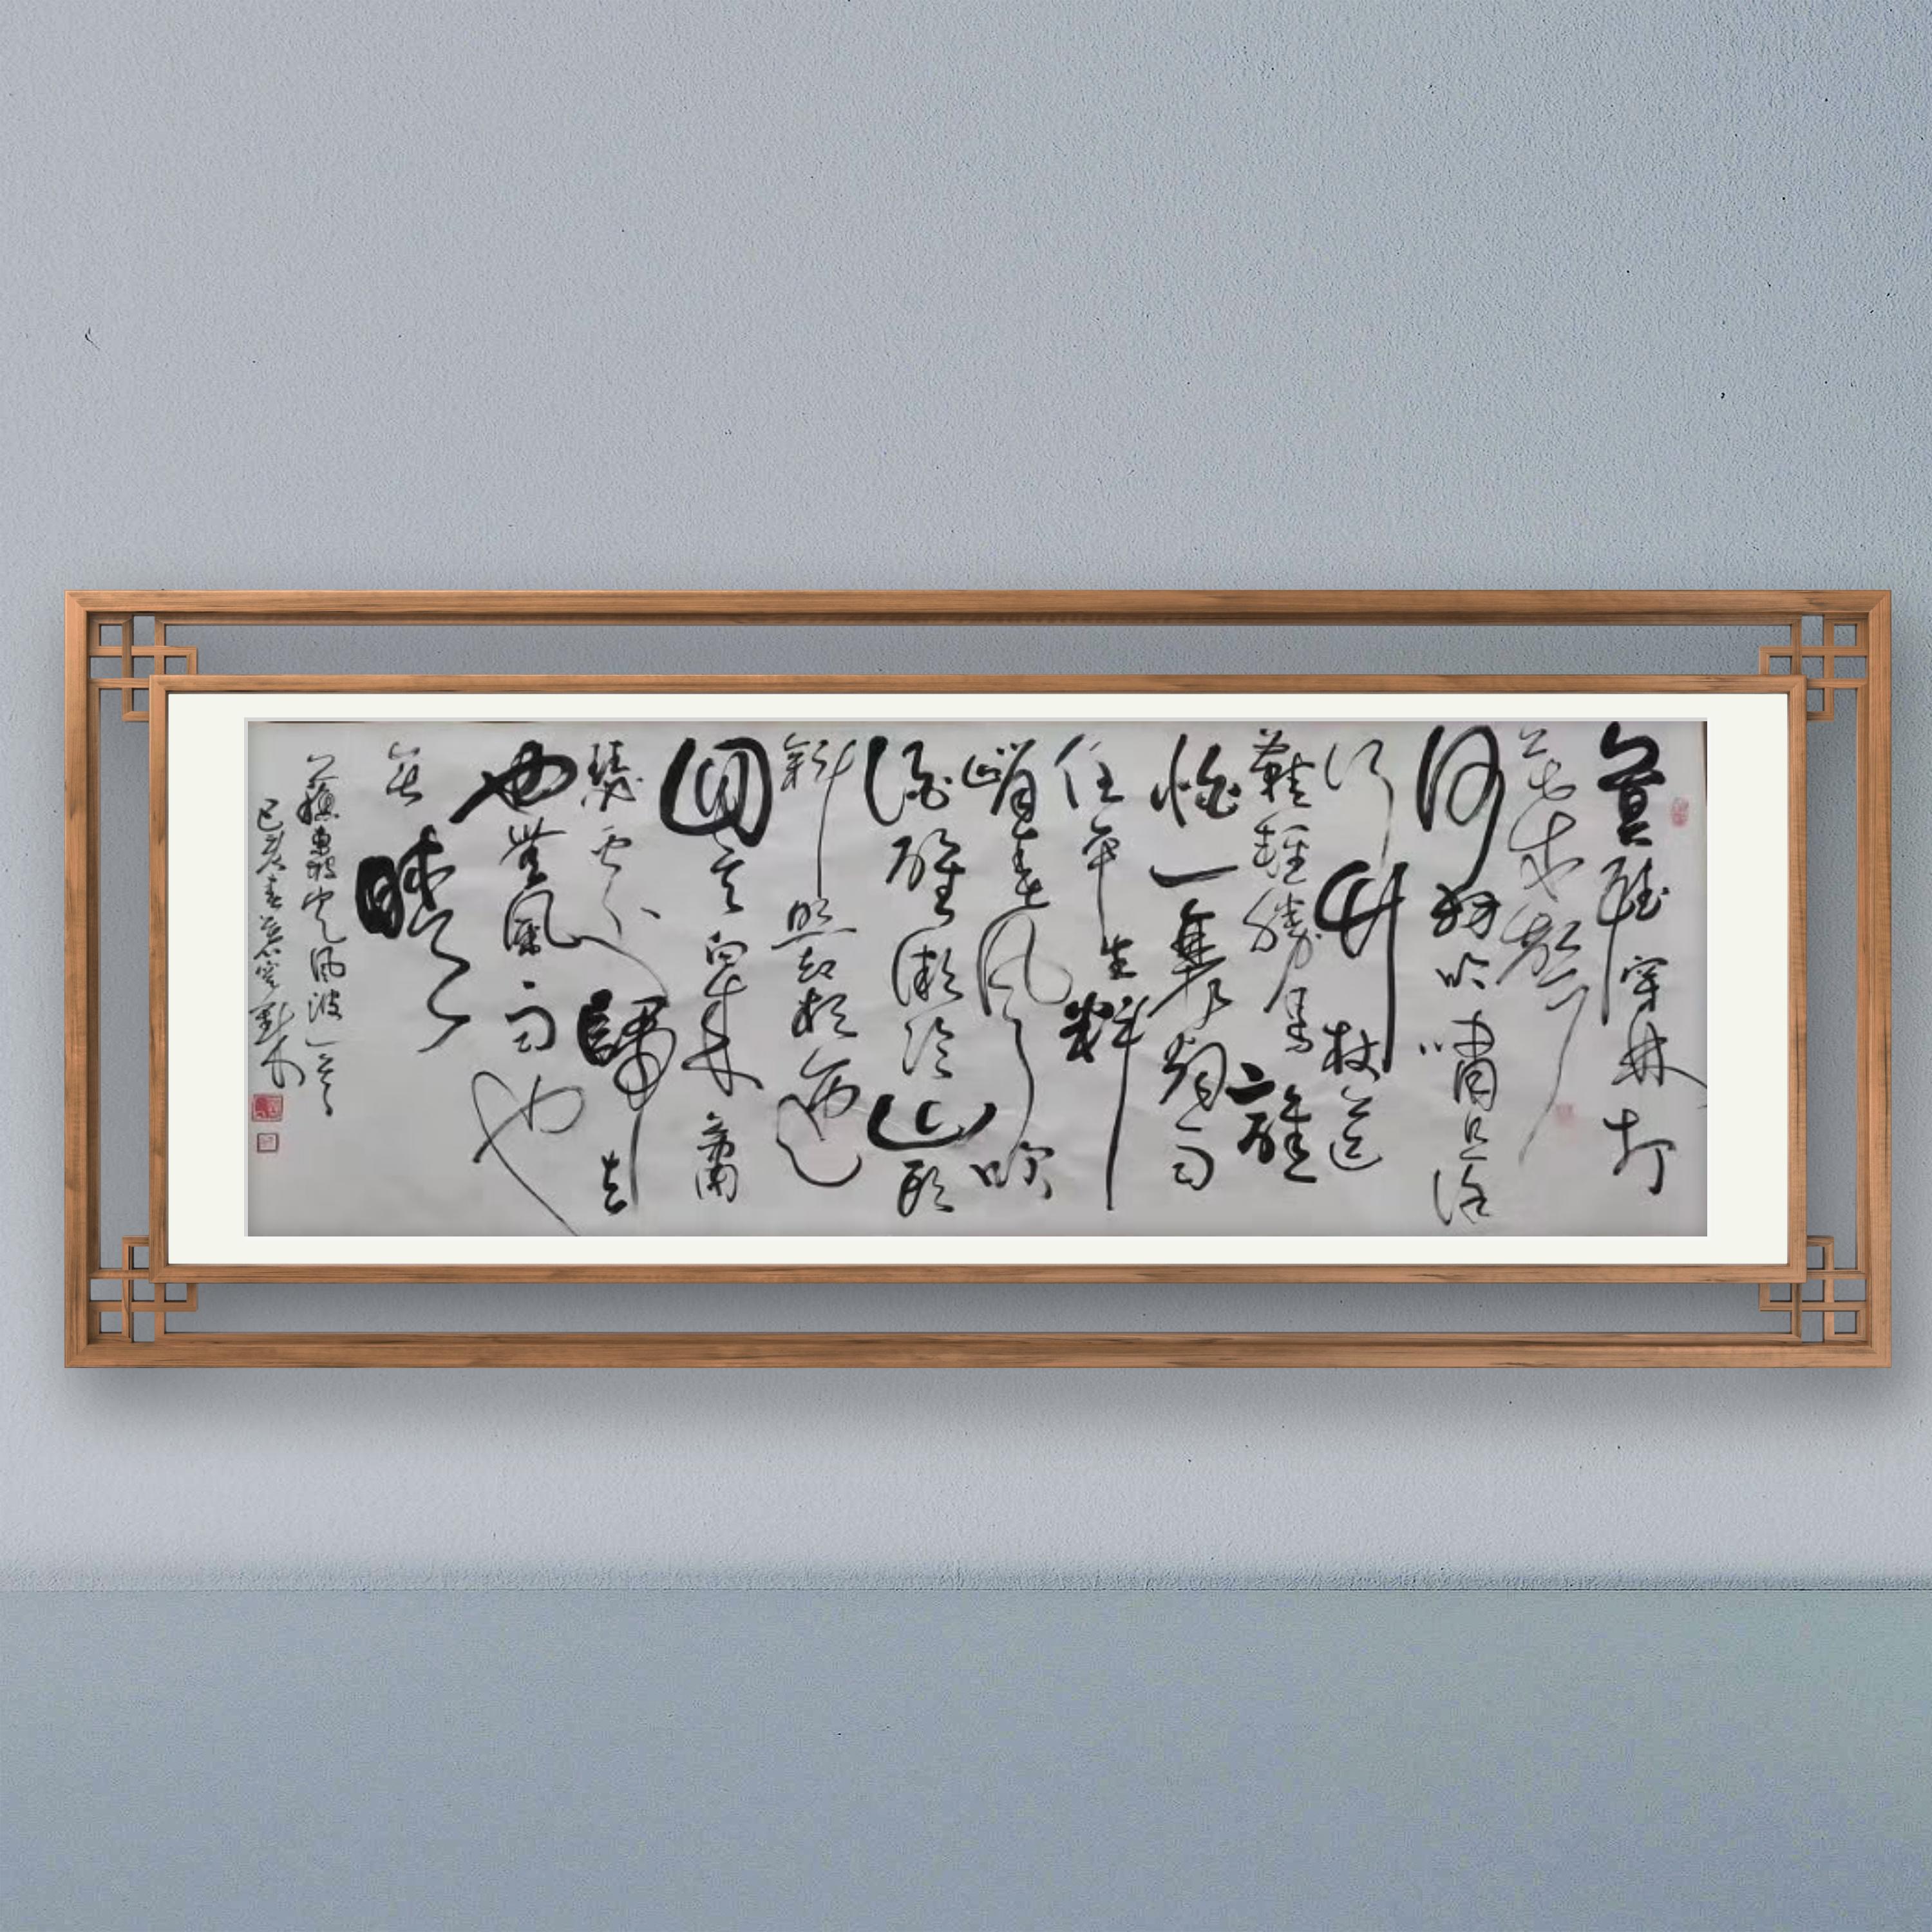 莫聽穿林打
葉聲
何妨吟嘯且徐
行竹杖芒
鞋輕勝馬誰
怕一蓑煙雨
任平生料
峭春風吹
酒醒微冷山頭
斜照却相迎
回首向來蕭
瑟處歸去
也無風雨也
無晴
蘇東坡定風波一首
己亥春